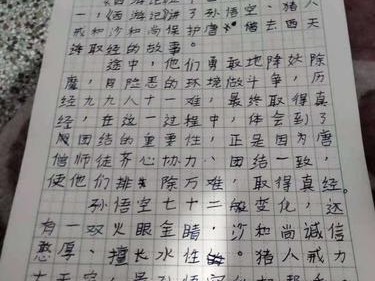 一，《西游记》讲了孙悟空、猪八
戒和沙和尚保护唐僧去西天
进取经的故事。
途中，他们勇敢地降妖除
魔，冒险恶的环境做斗争，历
经九九八十一难，最终取得真
经，在这一过程中，体会到了
团结的重要性，正是因为唐
僧师徒齐心协力、团结一致，
使他们排除万难，取得真经。
孙悟空七十二般变化，还
有一双火眼金睛，沙和尚诚信
憨厚、擅长水性的。猪八戒力
大无穷，是孙悟空